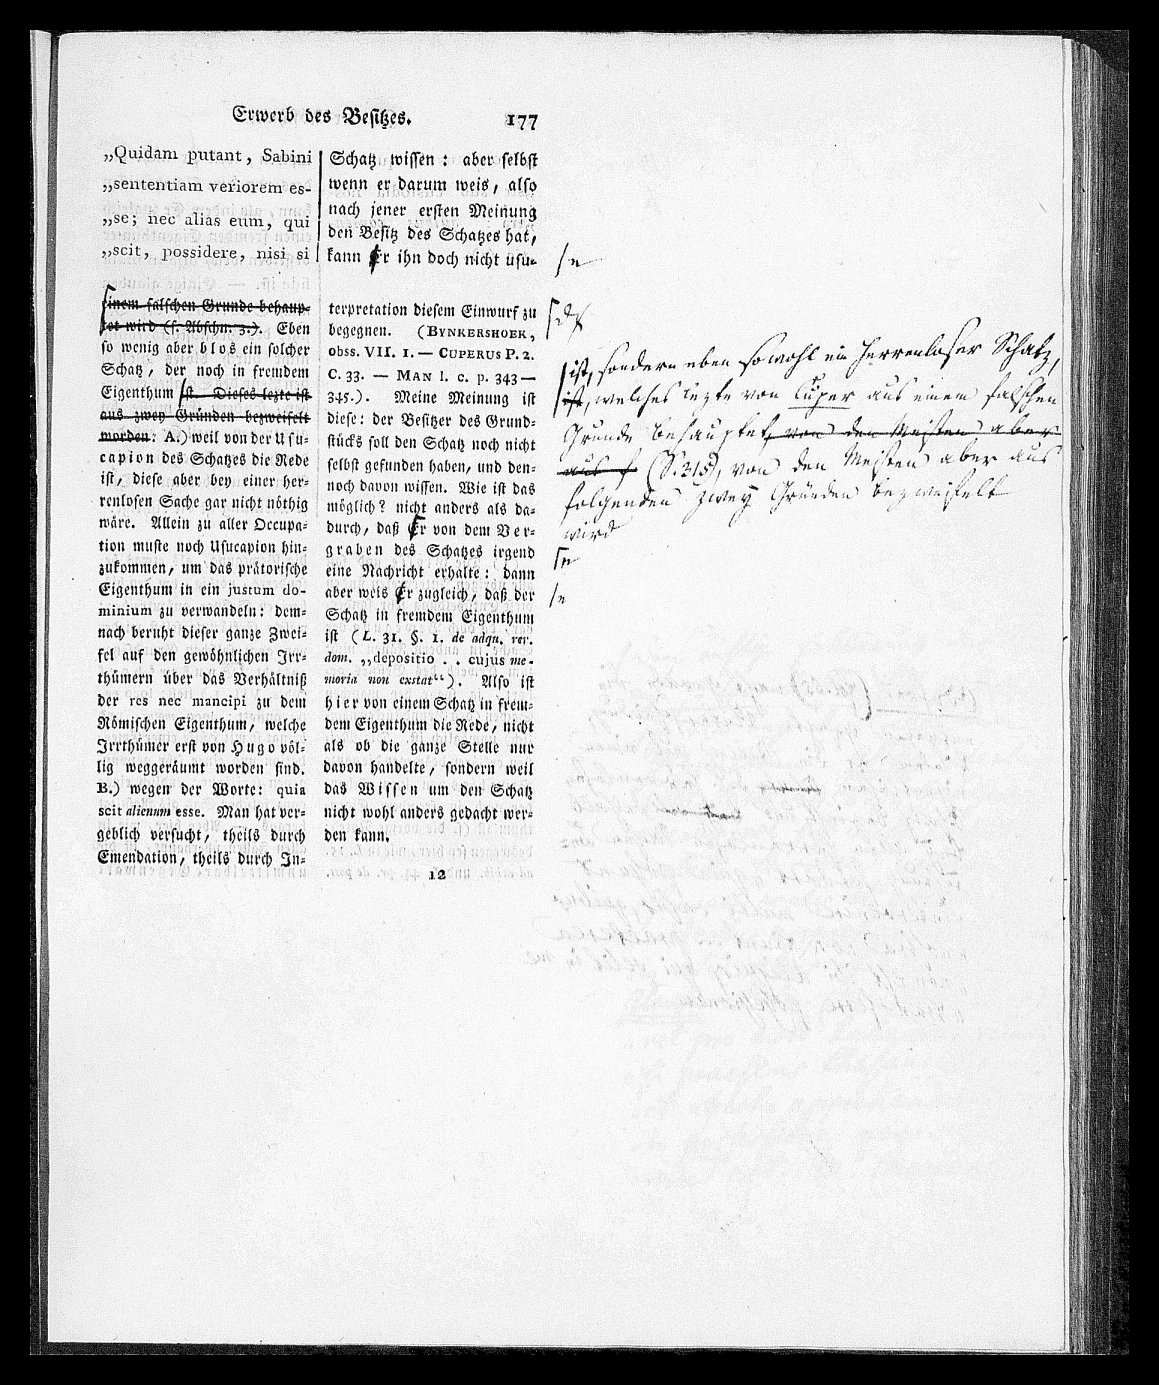 Erwerb des Besitzes. 177
„Quidam putant, Sabini
„sententiam veriorem es-
„se; nec alias eum, qui
„scit, possidere, nisi si
Schatz wissen: aber selbst
wenn er darum weis, also
nach jener ersten Meinung
den Besitz des Schatzes hat,
kann Er ihn doch nicht usu-
einem falschen Grunde behaup-
tet wird (s. Abschn. 3.). Eben
so wenig aber blos ein solcher
Schatz, der noch in fremdem
Eigenthum ist. Dieses lezte ist
aus zwey Gründen bezweifelt
worden: A.) weil von der Usu-
capion des Schatzes die Rede
ist, diese aber bey einer her-
renlosen Sache gar nicht nöthig
wäre. Allein zu aller Occupa-
tion muste noch Usucapion hin-
zukommen, um das prätorische
Eigenthum in ein justum do-
minium zu verwandeln: dem-
nach beruht dieser ganze Zwei-
fel auf den gewöhnlichen Irr-
thümern über das Verhältniß
der res nec mancipi zu dem
Römischen Eigenthum, welche
Irrthümer erst von Hugo völ-
lig weggeräumt worden sind.
B.) wegen der Worte: quia
scit alienum esse. Man hat ver-
geblich versucht, theils durch
Emendation, theils durch In-
terpretation diesem Einwurf zu
begegnen. (BYNKERSHOEK,
obss. VII. 1. — CUPERUS P. 2.
C. 33. — MAN l. c. p. 343—
345.). Meine Meinung ist
diese: der Besitzer des Grund-
stücks soll den Schatz noch nicht
selbst gefunden haben, und den-
noch davon wissen. Wie ist das
möglich? nicht anders als da-
durch, daß Er von dem Ver-
graben des Schatzes irgend
eine Nachricht erhalte: dann
aber weis Er zugleich, daß der
Schatz in fremdem Eigenthum
ist (L. 31. §. 1. de adqn. rer.
dom. „depositio . . cujus me-
moria non exstat“). Also ist
hier von einem Schatz in frem-
dem Eigenthum die Rede, nicht
als ob die ganze Stelle nur
davon handelte, sondern weil
das Wissen um den Schatz
nicht wohl anders gedacht wer-
den kann.
12
e
ist, sondern eben sowohl ein herrenloser Schatz,
ist, welches lezte von Cuper aus einem falschen
Grunde behauptet, von den Meisten aber
aus f (S. 215), von den Meisten aber aus
folgenden zwey Gründen bezweifelt
wird
e
e